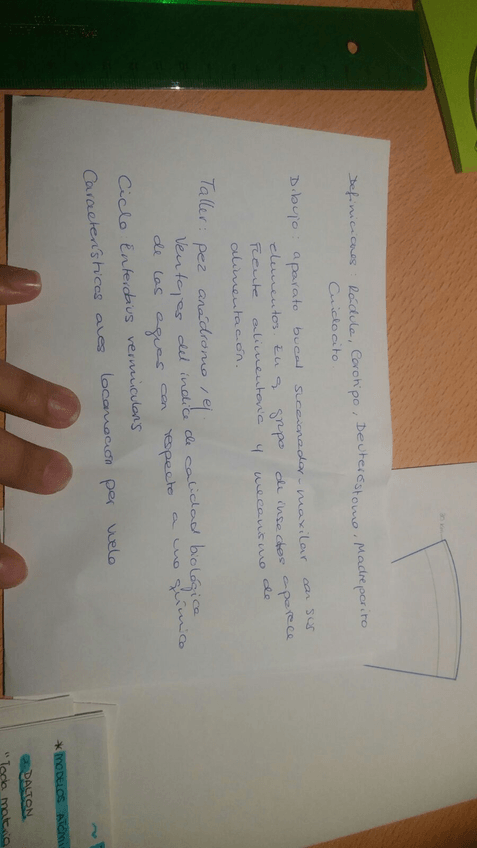 Definiciones: Rádula, Cariotipo, Deuteróstomo, Madreporito
Cnidocito
Dibujo: aparato bucal succionador-maxilar con sus
elementos. En q grupo de insectos aparece
Fuente alimentaria y mecanismo de
alimentación.
Taller: pez anádromo, ej
Ventajas del índice de calidad biológica
de las aguas con respecto a uno químico
Ciclo Enterobius vermicularis
Características aves locomoción por vuelo
* MODELOS
DALTON
"Toda materia